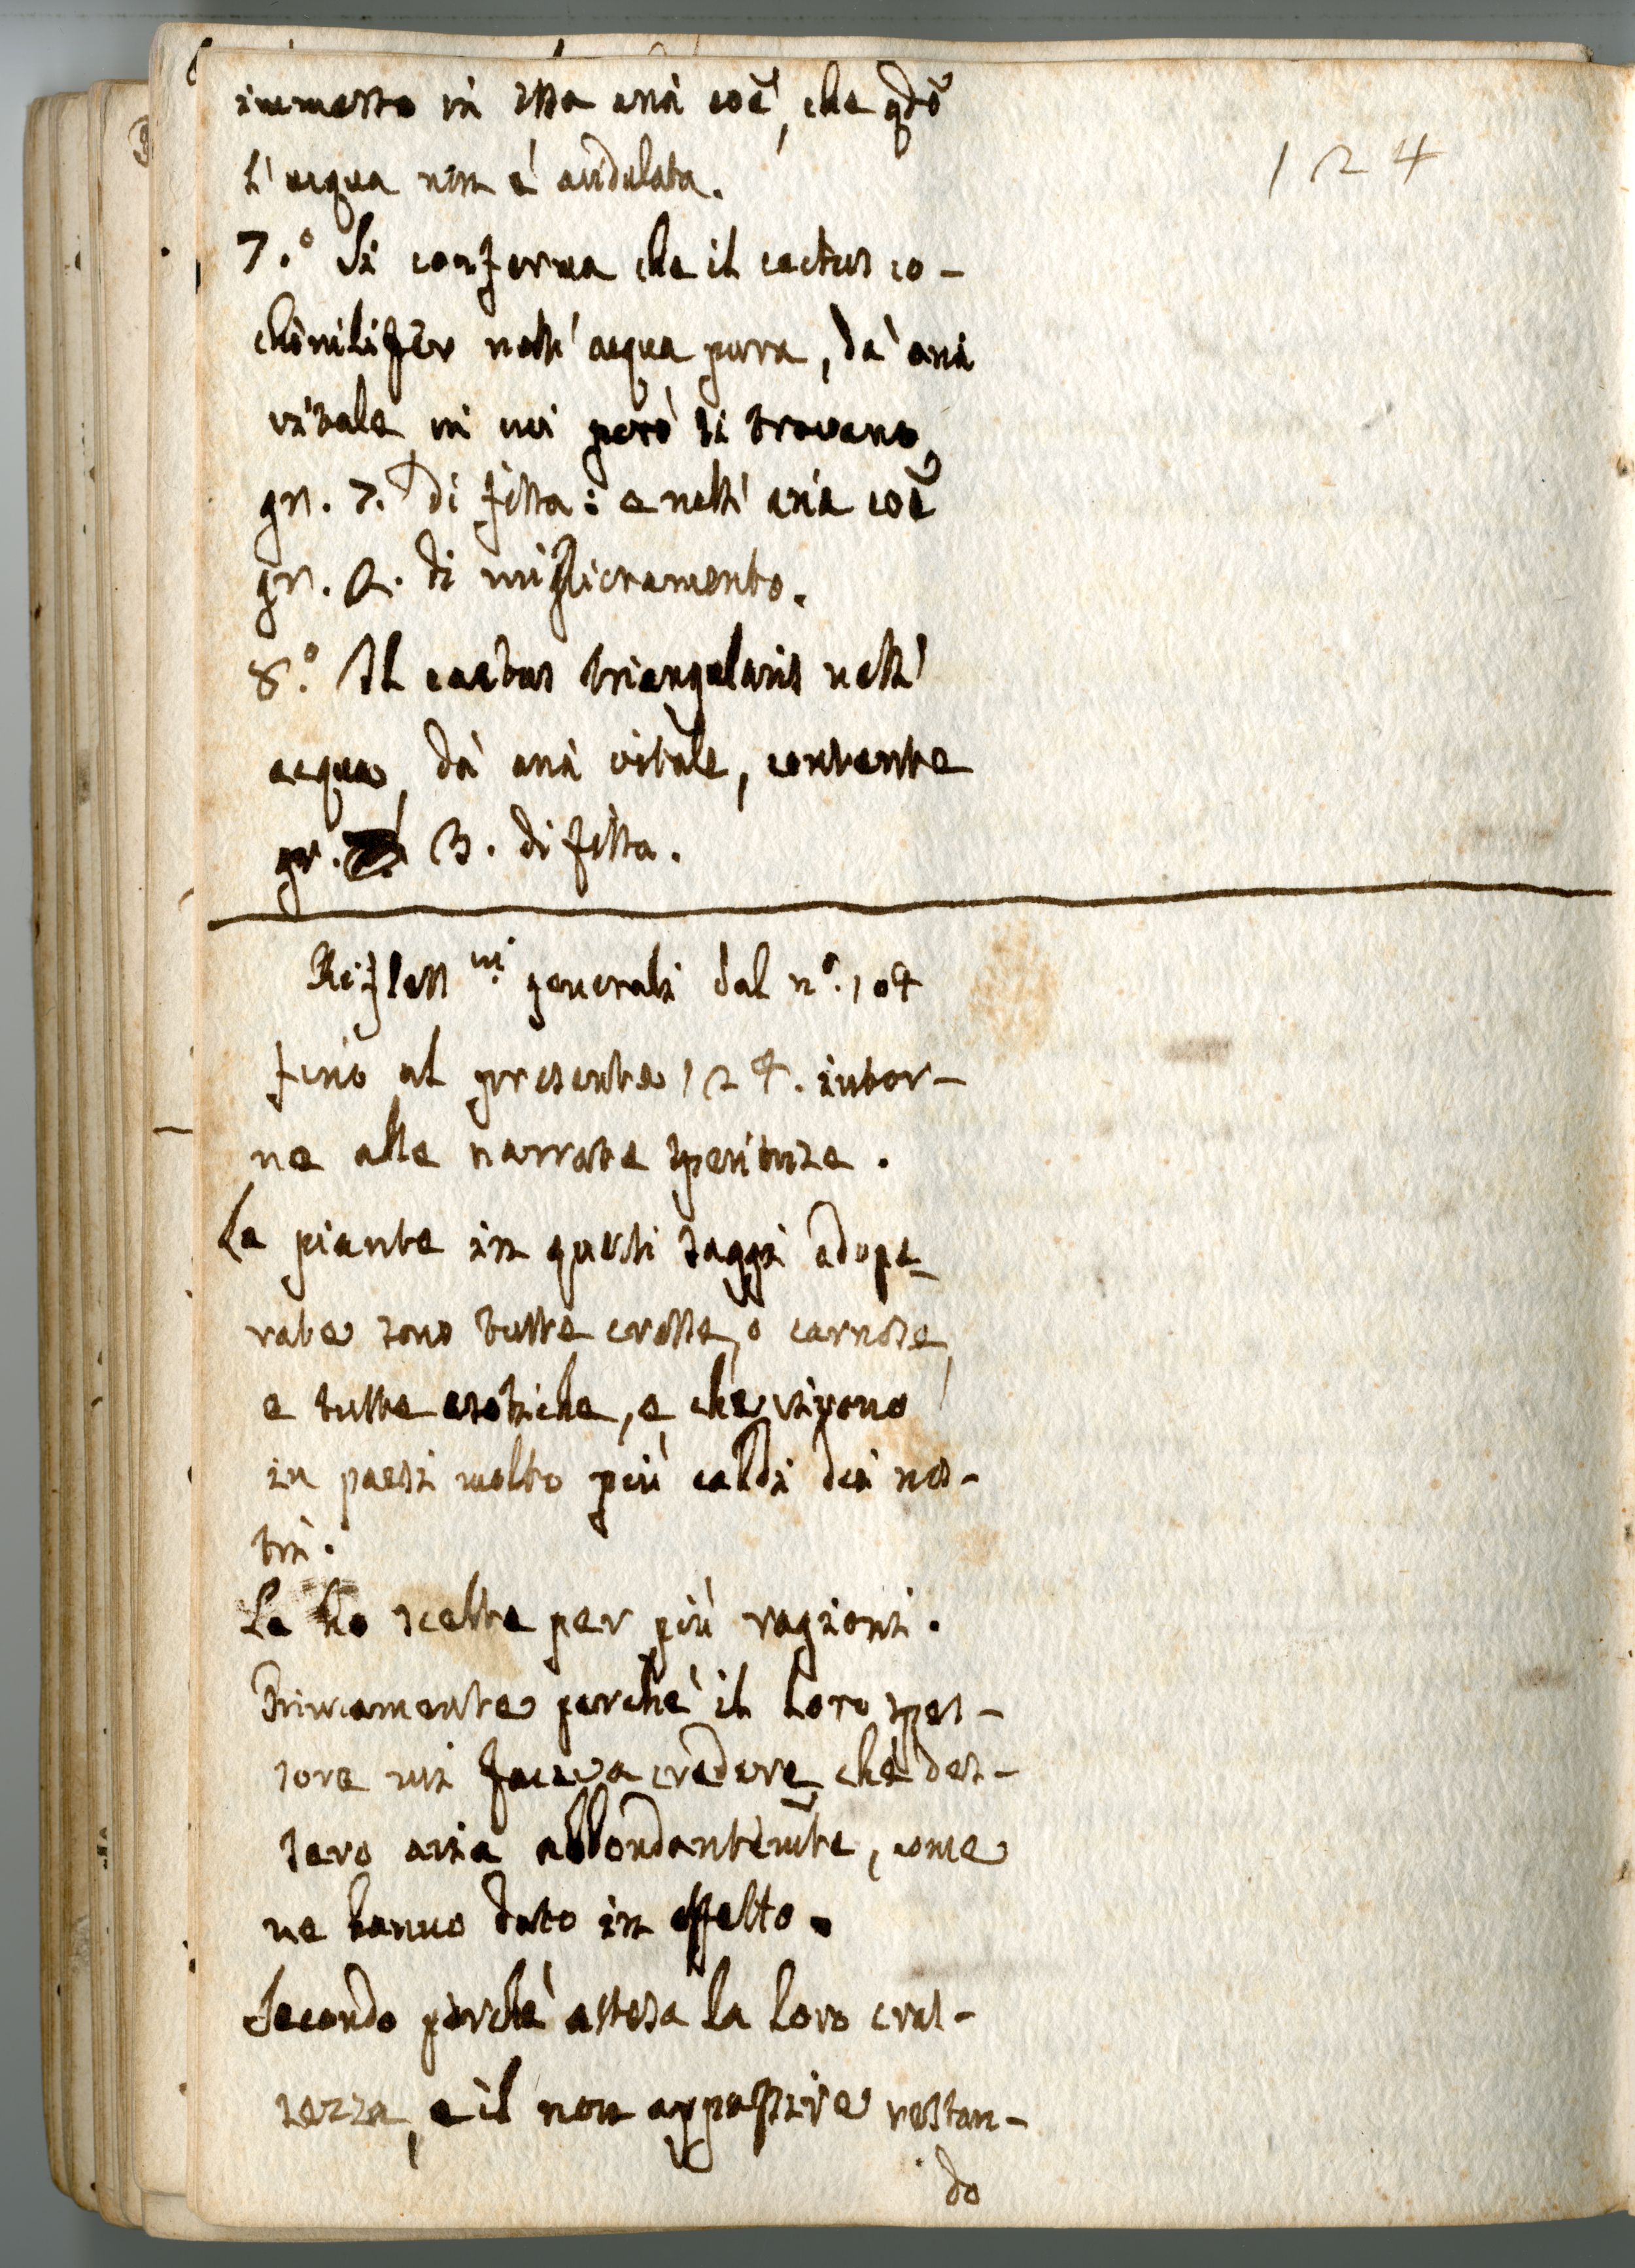 immesso in essa aria coē, che qdo
l'acqua non è acidulata.
124
7.° Si conferma che il cactus co-
chinilifer nell'acqua pura, dà aria
vitale, in cui però si trovano
gr. 7. di fissa: e nell'aria coē
gr. 2. di miglioramento.
8.° Il cactus triangularis nell'
acqua, dà aria vitale, contente
gr. 3. di fissa.
Rifless.ni generali dal n°. 104
fino al presente 124. intor-
no alle narrate sperienze.
Le piante in questi saggi adope-
rate sono tutte crasse, o carnose,
e tutte esotiche, e che vivono
in paesi molto più caldi dei nos-
tri.
Le ho scelte per più ragioni.
Primieramente perchè il loro spes-
sore mi faceva credere che des-
sero aria abbondantemte, come
ne hanno dato in effetto.
Secondo perchè attesa la loro cras-
sezza, e il non appassire restan-
do